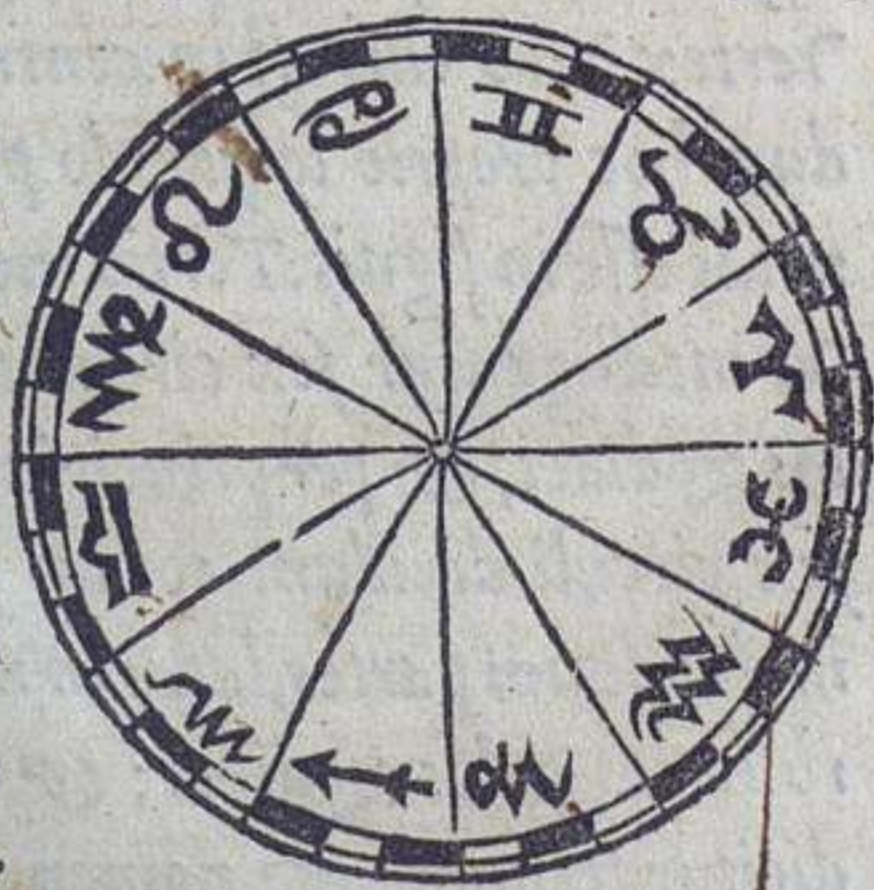 ♈
♉
♊
♋
♌
♍
♎
♏
♐
♑
♒
♓